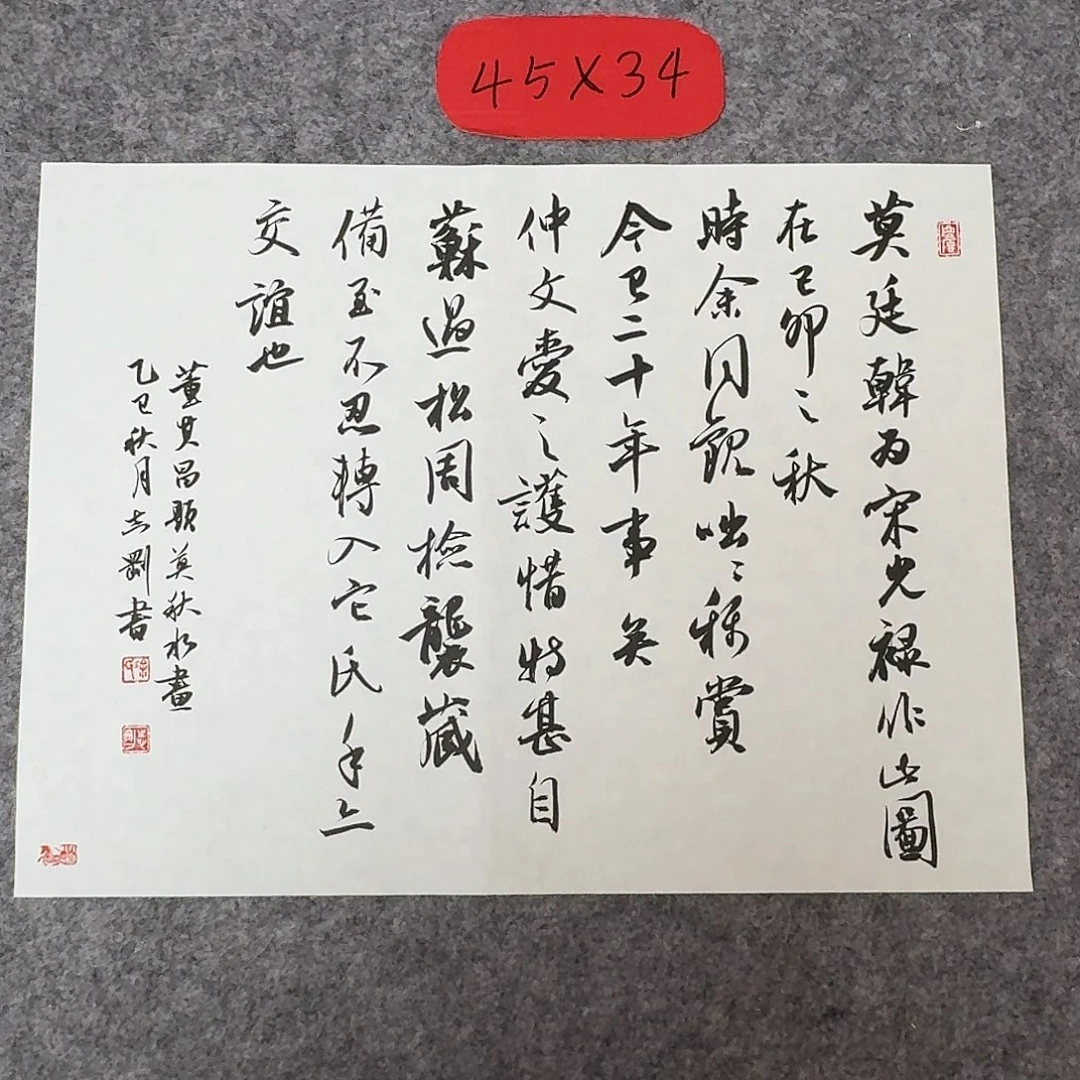 45X34
莫廷韓為宋光祿作此圖
在己卯之秋
時余同觀咄咄稱賞
今已二十年事矣
仲文愛之護惜特甚自
蘇過松周檢襲藏
備至不忍轉入它氏手亦
交誼也
董其昌題莫秋水畫
乙巳秋月志剛書